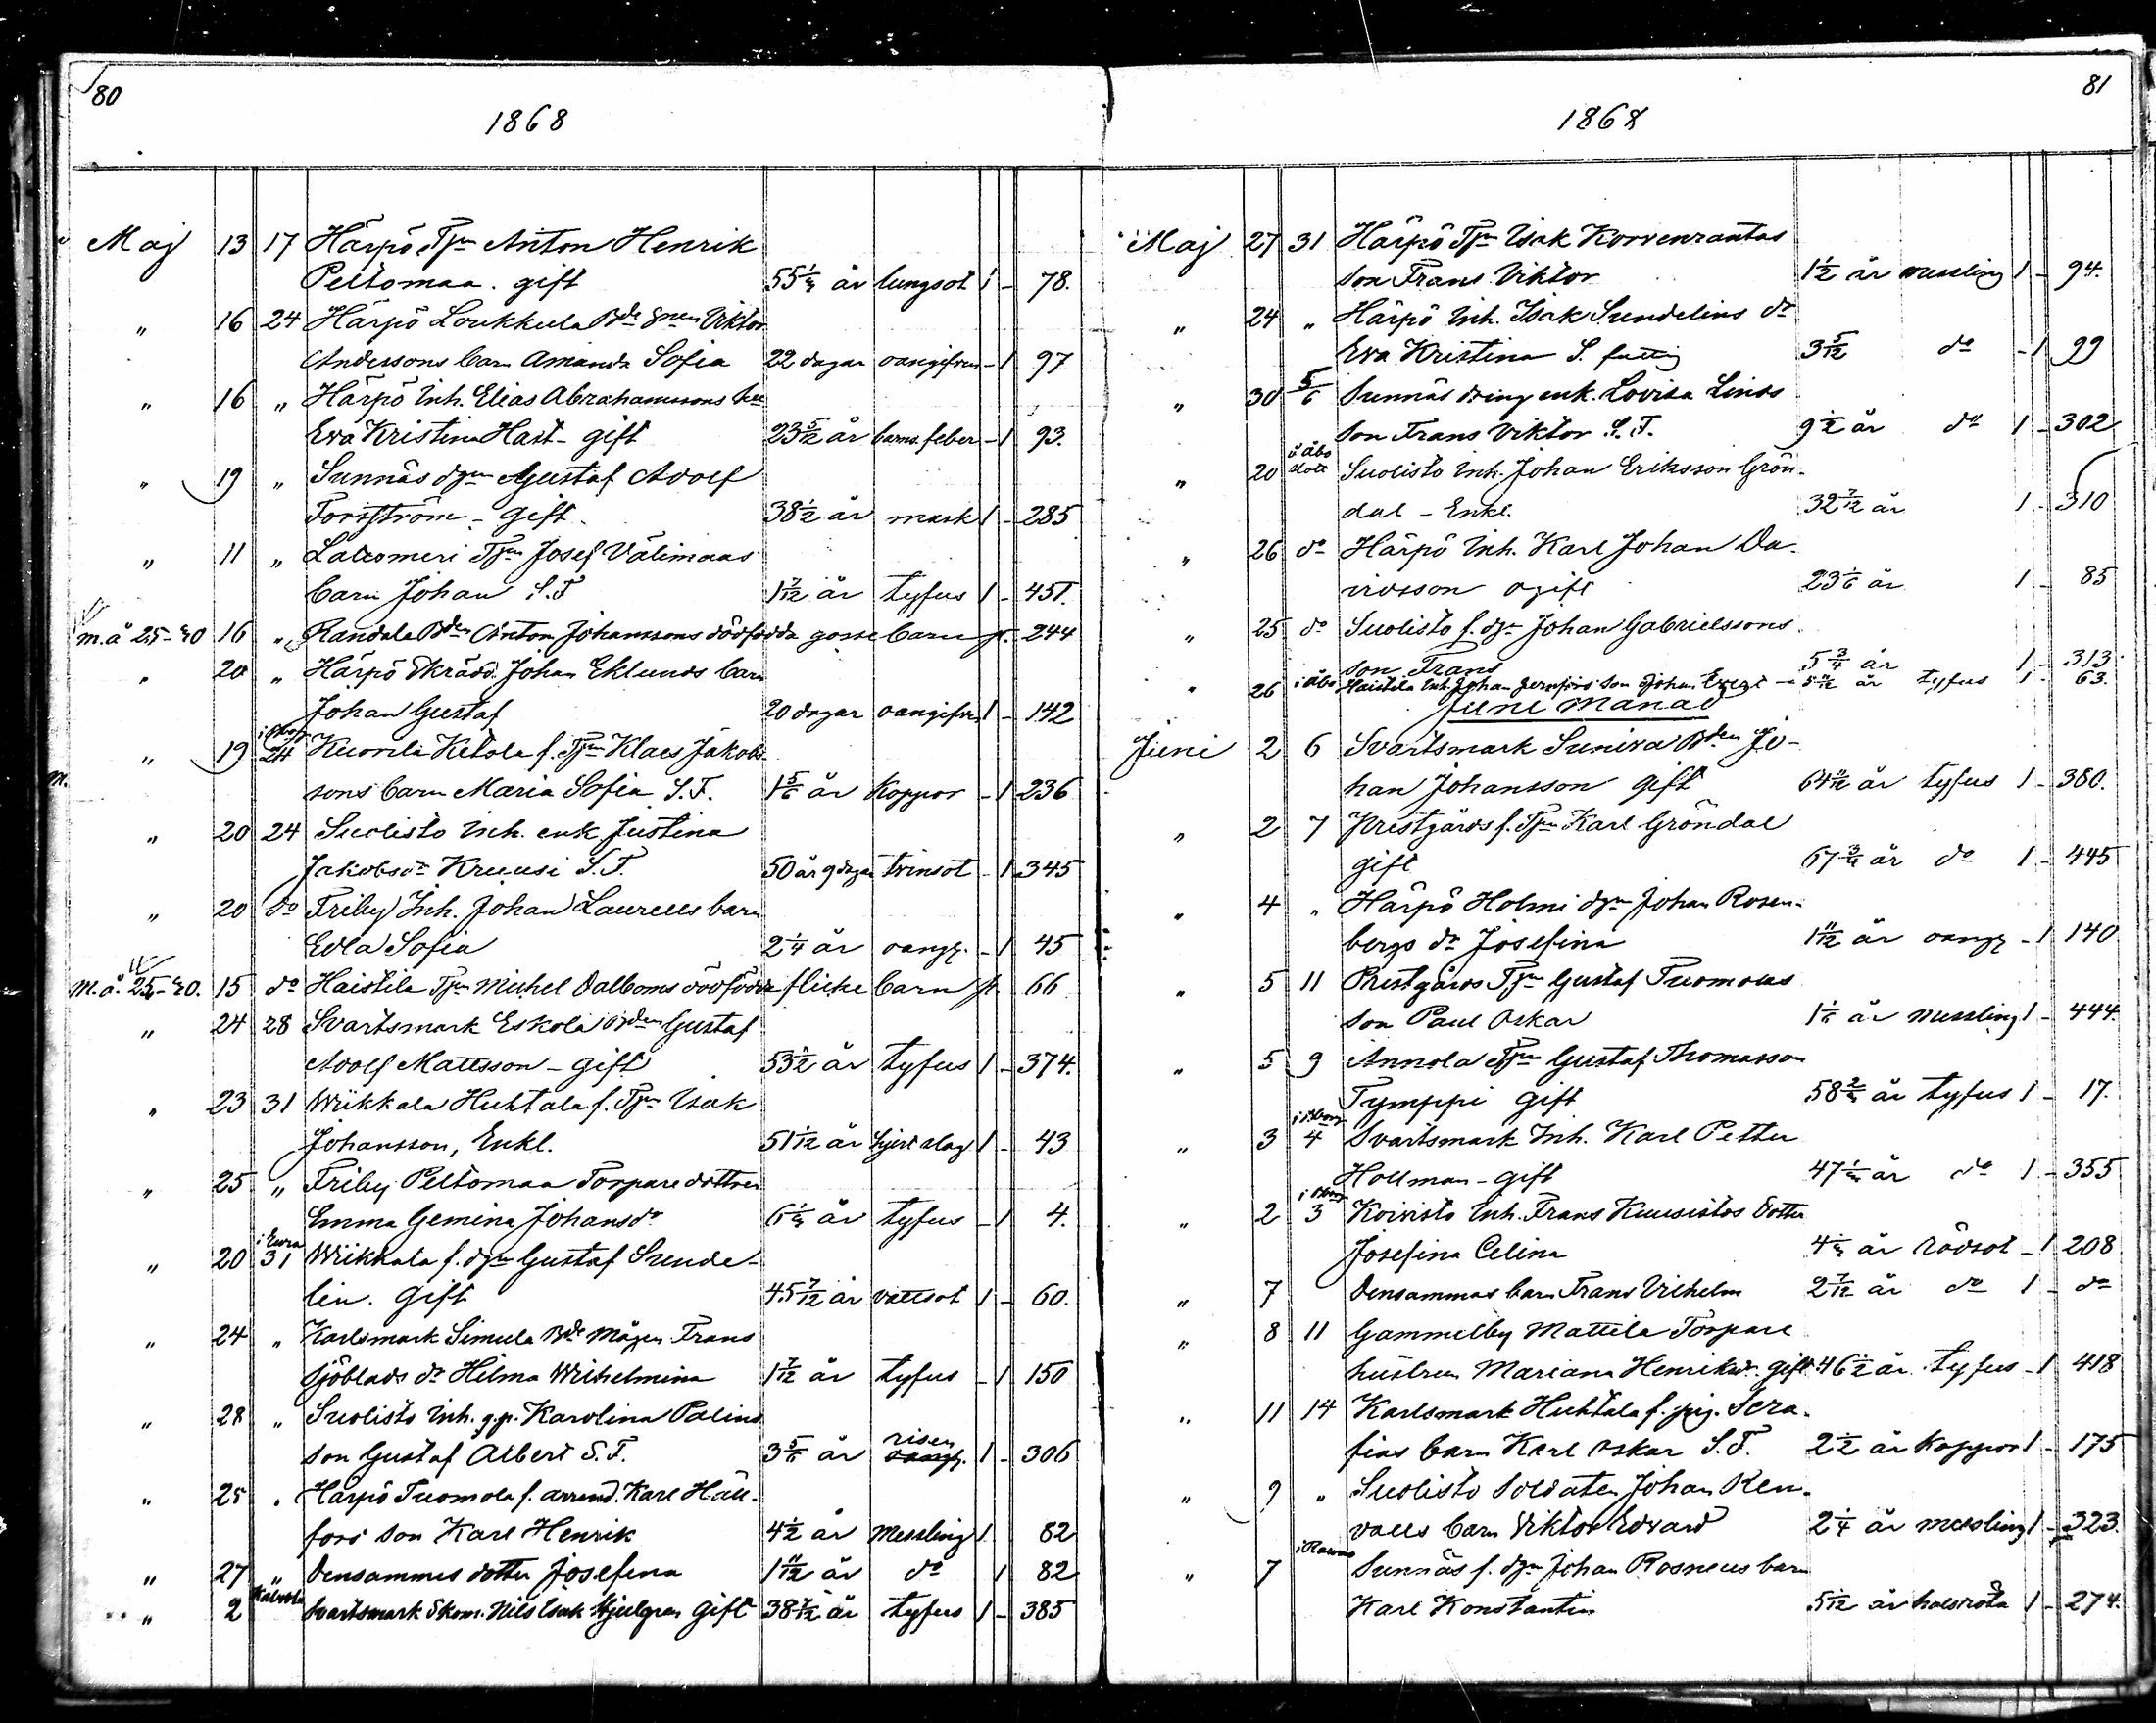 80
1868
Maj 13 17 Härpö Tjn Anton Henrik
Peltomaa. gift 55 1/4 år lungsot 1 - 78.
„ 16 24 Härpö Loukkula Bde Viktor
Anderssons barn Amanda Sofia 22 dagar oangifven - 1 97
„ 16 „ Härpö Inh. Elias Abrahamssons hu
Eva Kristina Hast - gift 23 5/12 år barns. feber - 1 93.
„ 19 „ Sunnäs dgn Gustaf Adolf
Forsström - gift. 38 1/2 år mask 1 - 285
„ 11 „ Lattomeri Tjn Josef Välimaas
barn Johan S.F 1 7/12 år tyfus 1 - 451.
m. å 25-40 16 „ Randala Bden Anton Johanssons dödfödda gosse barn 244
„ 20 „ Härpö Skrädd. Johan Eklunds barn
Johan Gustaf 20 dagar oangifven 1 - 142
„ 19 24 Kuorila Ketola f. Tjn Klaes Jakobs
m.
sons barn Maria Sofia S.F. 1 5/6 år Koppor - 1 236
„ 20 24 Suolisto Inh. enk Justina
Jakobsdr Kruusi S.F. 50 år 9 dagar tvinsot - 1 345
„ 20 do Friby Inh. Johan Laurells barn
Edla Sofia 2 1/4 år oangf. - 1 45
M. å. 25-40. 15 do Haistila Tjn Michel Dalboms dödfödda flicke barn 66
„ 24 28 Svartsmark Eskola Bden Gustaf
Adolf Mattsson - gift 53 1/2 år tyfus 1 - 374.
„ 23 31 Wiikkala Huhtala f. Tjn Isak
Johansson, Enkl. 51 1/12 år hjert slag 1 - 43
„ 25 „ Friby Peltomaa Torpare dottren
Emma Gemina Johansdr 6 1/4 år tyfus - 1 4.
„ 20 i Eura 31 Wiikkala f. dgn Gustaf Sunde-
lin. Gift 45 7/12 år vattsot 1 - 60.
„ 24 „ Karlsmark Simula Bde mågen Frans
Sjöblads dr Helma Wilhelmina 1 7/12 år tyfus - 1 150
„ 28 „ Suolisto Inh. g.p. Karolina Palins
son Gustaf Albert S.F. 3 5/6 år risen 1 - 306
„ 25 „ Härpö Tuomola f. arrend. Karl Häll-
fors son Karl Henrik 4 1/2 år Messling 1 82
„ 27 „ Densammes dotter Josefina 1 11/12 år do 1 82
„ 2 Kalvola Svartsmark Skom. Nils Isak Hjulgren Gift 38 7/12 år tyfus 1 - 385
81
1868
Maj 27 31 Härpö Tjn Isak Korvenrantas
son Frans Viktor 1 1/2 år messling 1 - 94.
„ 24 „ Härpö Inh. Isak Sundelins dr
Eva Kristina S. fattig 3 5/12 do - 1 99
„ 30 5/6 Sunnäs dräng enk. Lovisa Linds
son Frans Viktor S.F. 9 1/2 år do 1 - 302
„ 20 i Åbo slott Suolisto Inh. Johan Eriksson Grön-
dal - Enkl. 32 7/12 år 1 - 310
„ 26 do Härpö Inh. Karl Johan Da-
vidsson ogift 23 1/6 år 1 - 85
„ 25 do Suolisto f. dgn Johan Gabrielssons
son Frans 5 3/4 år 1 - 313
„ 26 i Åbo Haistila Inh. Johan Jernfors son Johan år tyfus 1 - 63.
Juni Månad
Juni 2 6 Svartsmark Sunira Bden Jo-
han Johansson gift 64 11/12 år tyfus 1 - 380.
„ 2 7 Prestgårds f. Tjn Karl Gröndal
gift 67 3/4 år do 1 - 445
„ 4 „ Härpö Holmi dgn Johan Rosen-
bergs dr Josefina 1 11/12 år oangf - 1 140
„ 5 11 Prestgårds Tjn Gustaf Tuomolas
son Paul Oskar 1 1/6 år messling 1 - 444.
„ 5 9 Annola Tjn Gustaf Thomasson
Tymppi gift 58 2/3 år tyfus 1 - 17.
„ 3 4 Svartsmark Inh. Karl Petter
Hollman - gift 47 1/4 år do 1 - 355
„ 2 3 Koivisto Inh. Frans Kuusistos dotter
Josefina Celina 4 1/4 år rödsot - 1 208
„ 7 Densammas barn Frans Vilhelm 2 7/12 år do 1 - do
„ 8 11 Gammelby Mattila Torpare
hustrun Mariana Henriksdr. gift 46 1/2 år tyfus - 1 418
„ 11 14 Karlsmark Huhtala f. pig. Sera-
fias barn Karl Oskar S.F. 2 1/2 år Koppor 1 - 175
„ 9 „ Suolisto Soldaten Johan Ren-
valls barn Viktor Edvard 2 1/4 år messling 1 - 323.
„ 7 i Raumo Sunnäs f. dgn Johan Rosnells barn
Karl Konstantin 5 1/12 år halsröta 1 - 274.